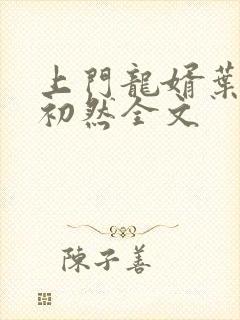 上門龍婿葉
初然全文
陳子善